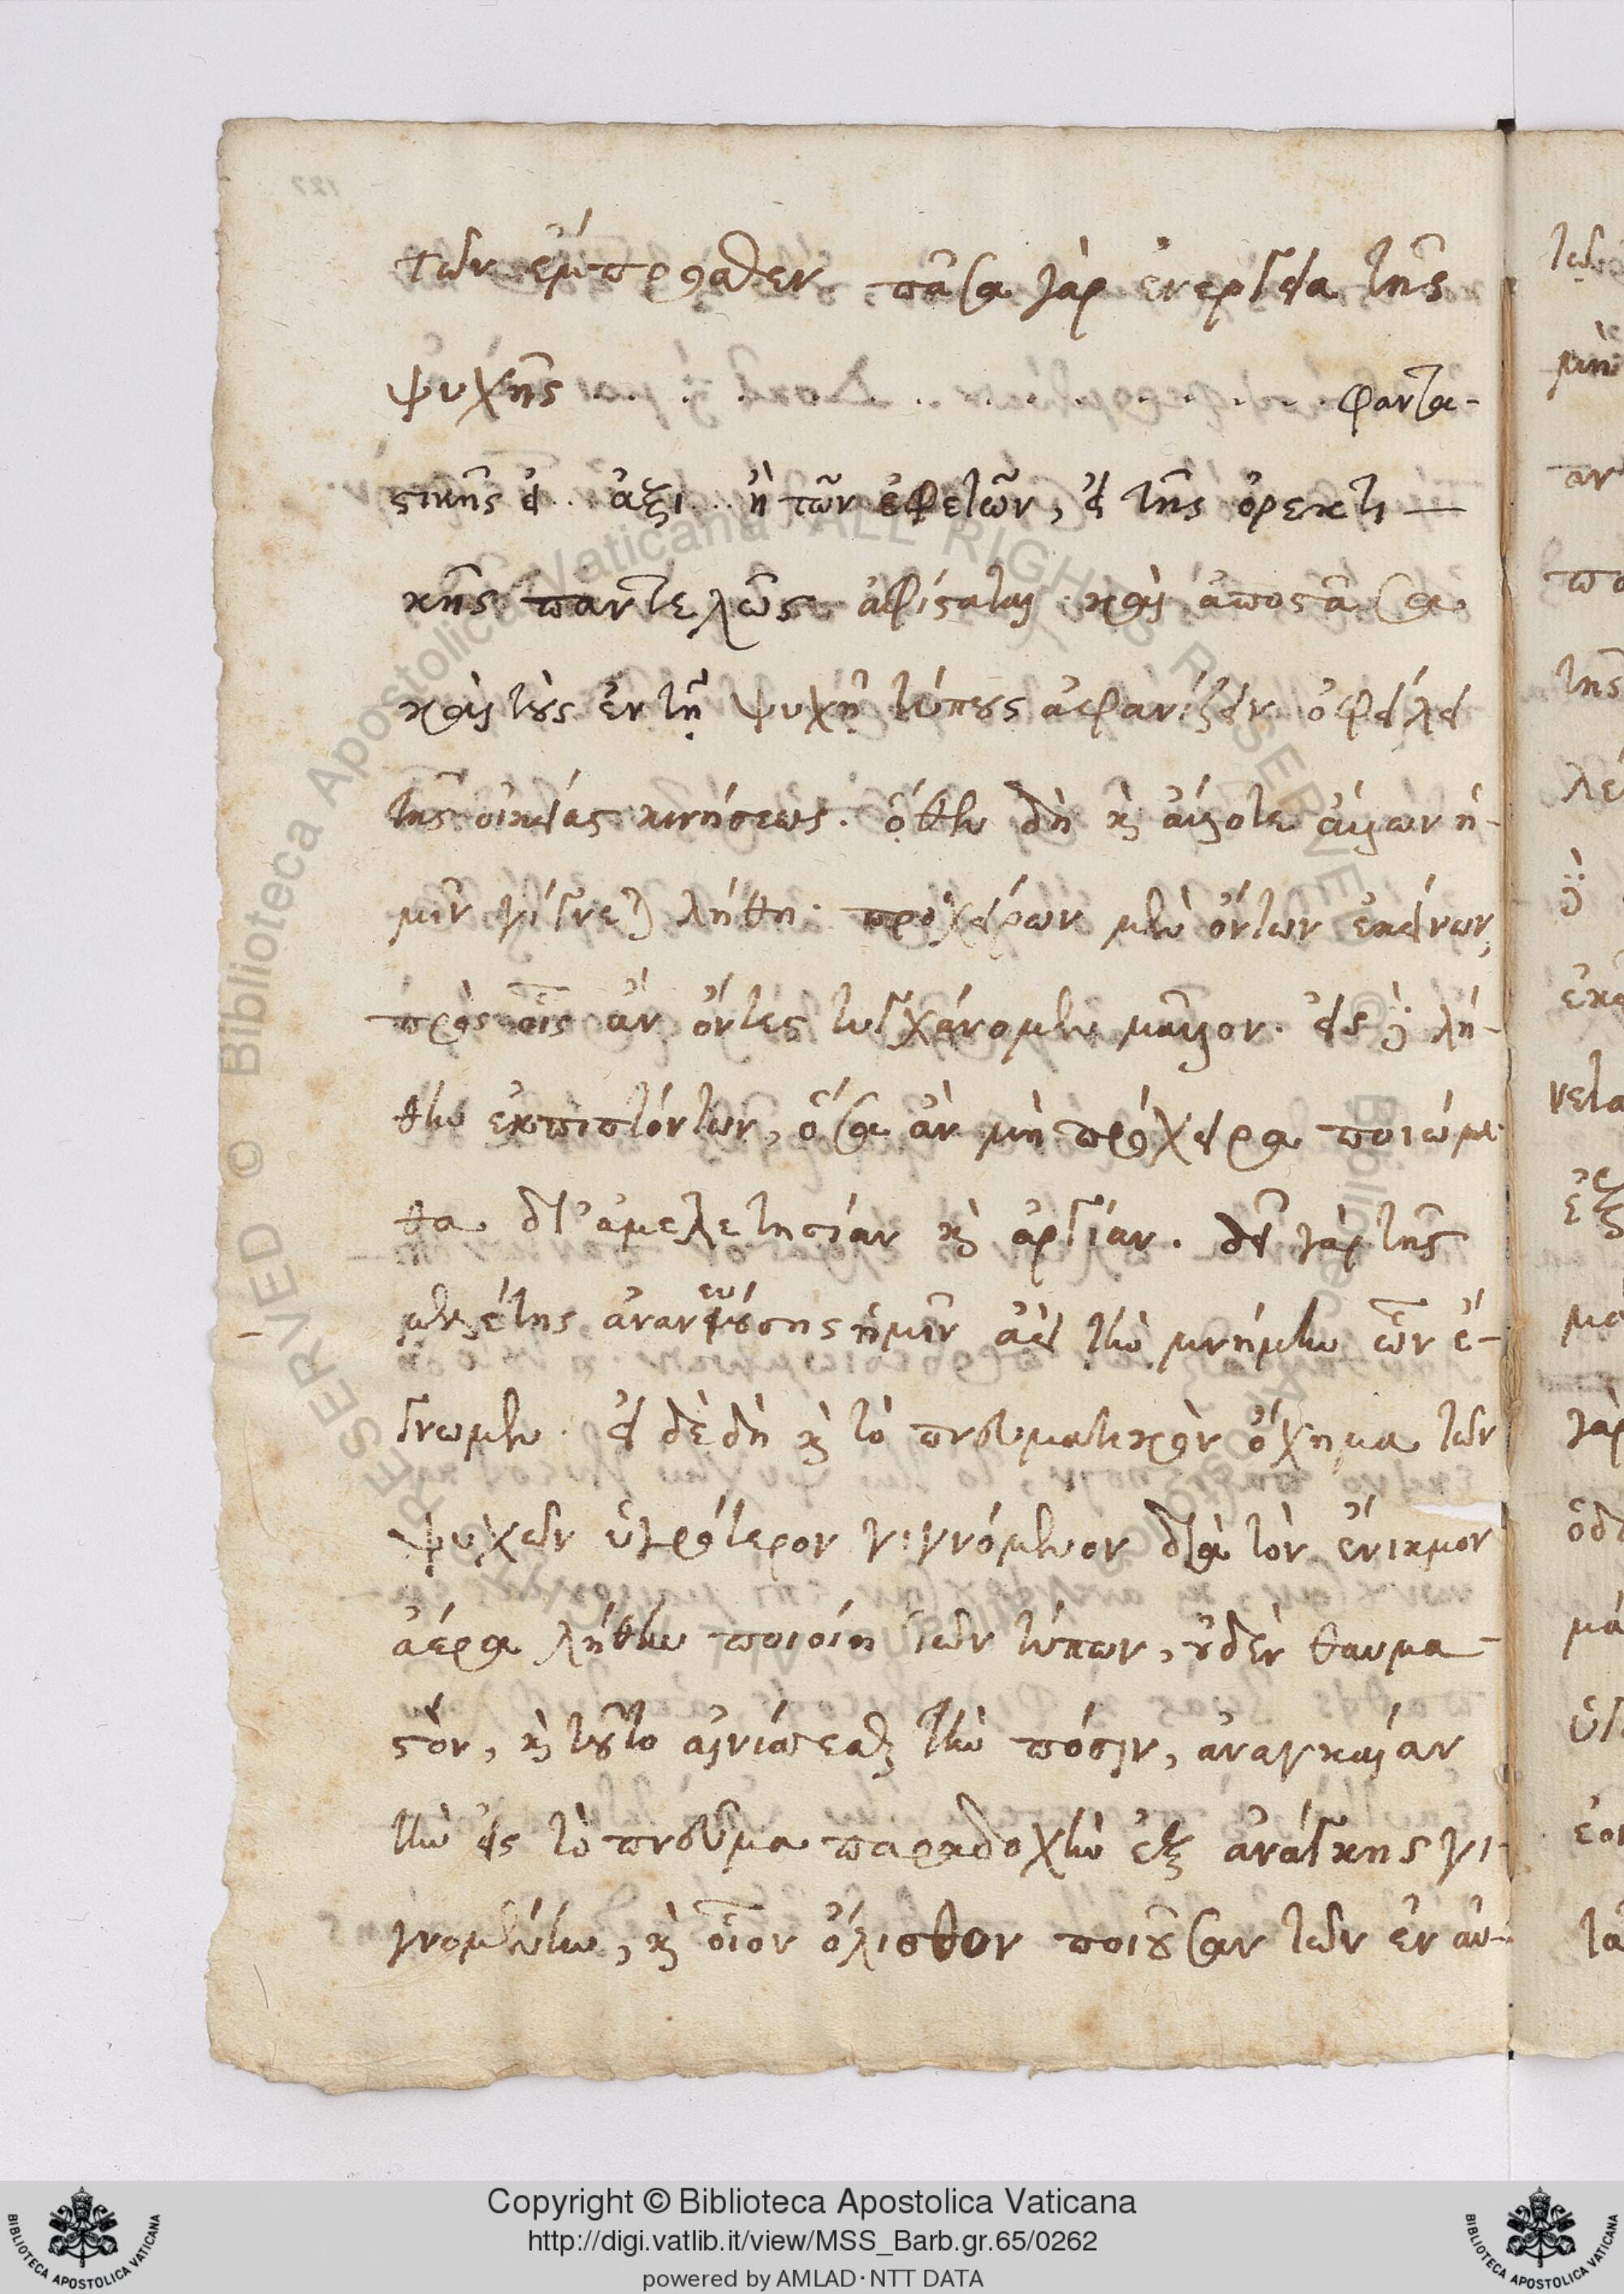 τῶν ἔμπροσθεν πᾶσα γὰρ ἐνεργεία τῆς
ψυχῆς . . . . . . . . . . . . φαντα-
στικῆς εἰ .. ἀξι ... ἢ τῶν ἐφετῶν, εἰ τῆς ὀρεκτι-
κῆς παντελῶς ἀφίσταται καὶ ἀποστᾶσα
καὶ τοὺς ἐν τῇ ψυχῇ τύπους ἀφανίζειν ὀφείλει
τῆς οἰκείας κινήσεως. ὅθεν δὴ καὶ ἄλλοτε ἄλλων ἡ-
μῖν γίγνεται λήθη. προχείρων μὲν ὄντων ἐκείνων,
πρὸς οἷς ἂν ὄντες τυγχάνομεν μᾶλλον. εἰς δὲ λή-
θην ἐκπιπτόντων, ὅσα ἂν μὴ πρόχειρα ποιώμε-
θα δι' ἀμελετησίαν καὶ ἀργίαν. δεῖ γὰρ τῆς
μελέτης ἀνανεούσης ἡμῖν ἀεὶ τὴν μνήμην ὧν ἔ-
γνωμεν. εἰ δὲ δὴ καὶ τὸ πνευματικὸν ὄχημα τῶν
ψυχῶν ὑγρότερον γιγνόμενον διὰ τὸν ἔνικμον
ἀέρα λήθην ποιοίη τῶν τύπων, οὐδὲν θαυμα-
στόν, καὶ τοῦτο αἰνίττεσθαι τὴν πόσιν, ἀναγκαίαν
τὴν εἰς τὸ πνεῦμα παραδοχὴν ἐξ ἀνάγκης γι-
γνομένην, καὶ οἷον ὄλισθον ποιοῦσαν τῶν ἐν αὐ-
Copyright © Biblioteca Apostolica Vaticana
http://digi.vatlib.it/view/MSS_Barb.gr.65/0262
powered by AMLAD·NTT DATA